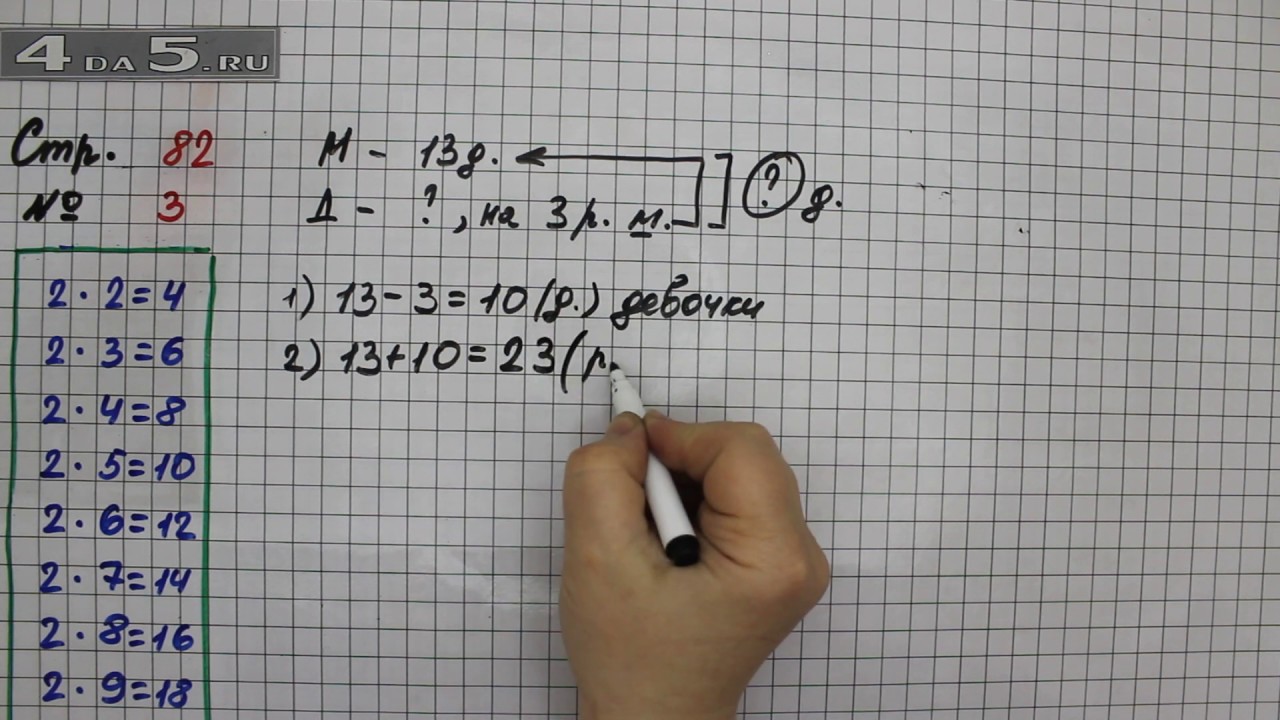 4DA5.RU
Стр. 82
№ 3
М - 13д.
Д - ?, на 3 р. м.
? д.
1) 13-3=10(д.) девочки
2) 13+10=23(р
2·2=4
2·3=6
2·4=8
2·5=10
2·6=12
2·7=14
2·8=16
2·9=18